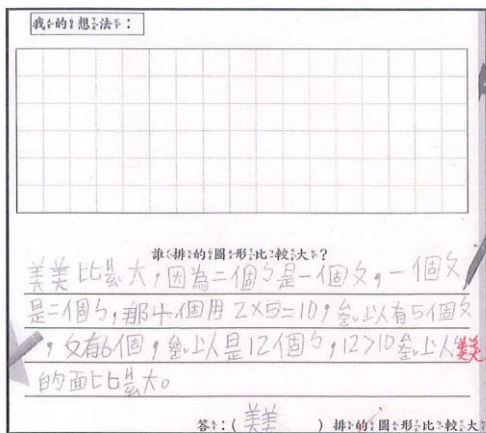 我的想法：
誰排的圖形比較大？
美美比ㄐㄧㄠˋ大，因為二個ㄅ是一個ㄆ，一個ㄆ
是二個ㄅ，那4個用2×5=10，所以有5個ㄆ
，ㄆ有6個，所以是12個ㄅ，12>10所以美美
的面比ㄐㄧㄠˋ大。
答：（ 美美 ）排的圖形比較大